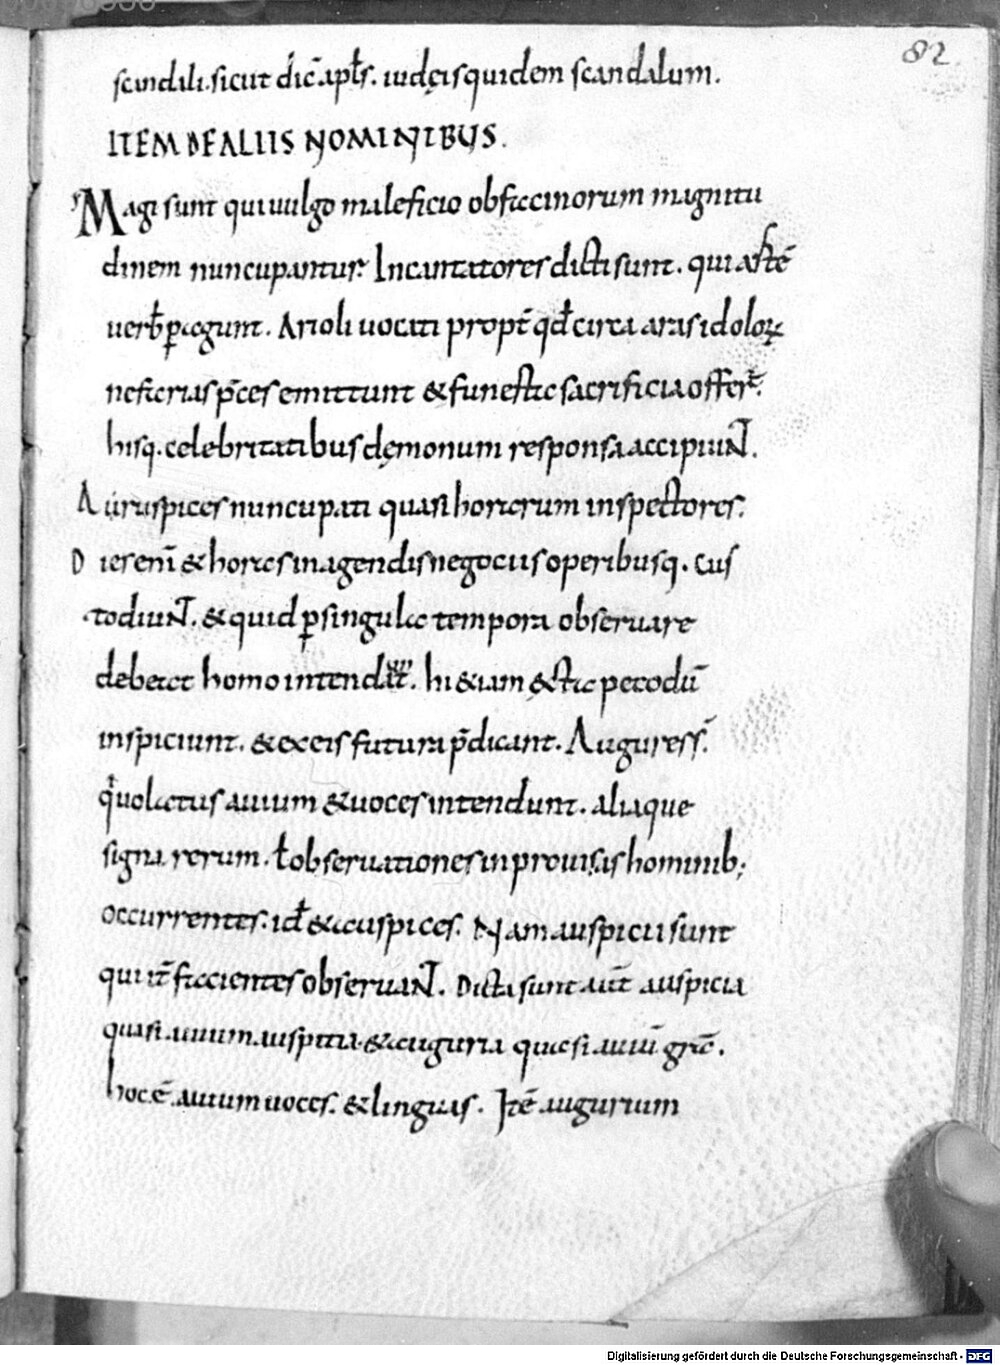 82
scandali. sicut dic̄ apłs. iudęis quidem scandalum.
ITEM DE ALIIS NOMINIBUS.
Magi sunt qui uulgo maleficio obfaccinorum magnitu
dinem nuncupantur. Incantatores dicti sunt. qui artē
uerb̄ peragunt. Arioli uocati propt̄ qđ circa aras idoloꝝ
nefarias p̄ces emittunt & funesta sacrificia offer̄.
hisq. celebritatibus dęmonum responsa accipiuNT.
Auruspices nuncupati quasi horarum inspectores.
Dies enī & horas in agendis negociis operibusq. cus
todiuNT. & quid ꝑ singula tempora obseruare
debeat homo intendat̄. hi &iam &xta pecodū
inspiciunt. & ex eis futura p̄dicant. Augures s̄.
qⁱ uolatus auium & uoces intendunt. aliaque
signa rerum. ł obseruationes inprouisas hominib;
occurrentes. id̄ & auspices. Nam auspicii sunt
qui it̄ faccientes obseruaNT. Dicta sunt aūt auspicia
quasi auium auspitia & auguria quasi auiū gar̄.
hoc ē auium uoces. & linguas. Itē augurium
Digitalisierung gefördert durch die Deutsche Forschungsgemeinschaft - DFG